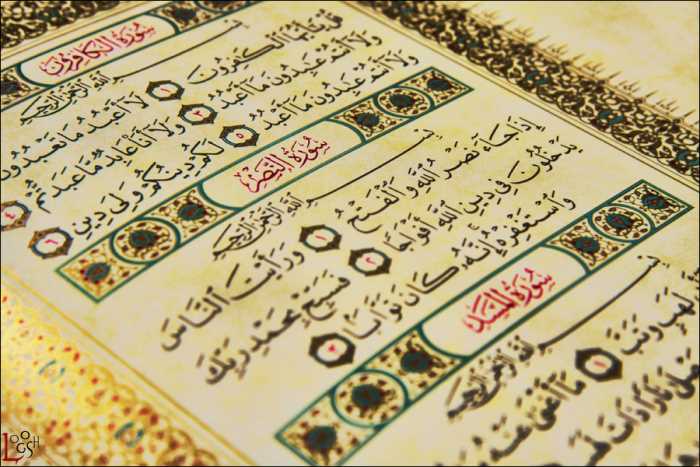 سُورَةُ الكَافِرُونَ
بِسْمِ ٱللَّهِ ٱلرَّحْمَٰنِ ٱلرَّحِيمِ
قُلْ يَٰٓأَيُّهَا ٱلْكَٰفِرُونَ ١ لَآ أَعْبُدُ مَا تَعْبُدُونَ
وَلَآ أَنتُمْ عَٰبِدُونَ مَآ أَعْبُدُ ٣ وَلَآ أَنَا۠ عَابِدٌ مَّا عَبَدتُّمْ ٤
وَلَآ أَنتُمْ عَٰبِدُونَ مَآ أَعْبُدُ ٥ لَكُمْ دِينُكُمْ وَلِىَ دِينِ ٦
سُورَةُ النَّصْرِ
بِسْمِ ٱللَّهِ ٱلرَّحْمَٰنِ ٱلرَّحِيمِ
إِذَا جَآءَ نَصْرُ ٱللَّهِ وَٱلْفَتْحُ ١ وَرَأَيْتَ ٱلنَّاسَ
يَدْخُلُونَ فِى دِينِ ٱللَّهِ أَفْوَاجًا ٢ فَسَبِّحْ بِحَمْدِ رَبِّكَ
وَٱسْتَغْفِرْهُ إِنَّهُۥ كَانَ تَوَّابًۢا ٣
سُورَةُ المَسَدِ
بِسْمِ ٱللَّهِ ٱلرَّحْمَٰنِ ٱلرَّحِيمِ
لَهَبٍ وَتَبَّ ١ مَآ أَغْنَىٰ عَنْهُ
نَارًا ذَاتَ
LOOGSH